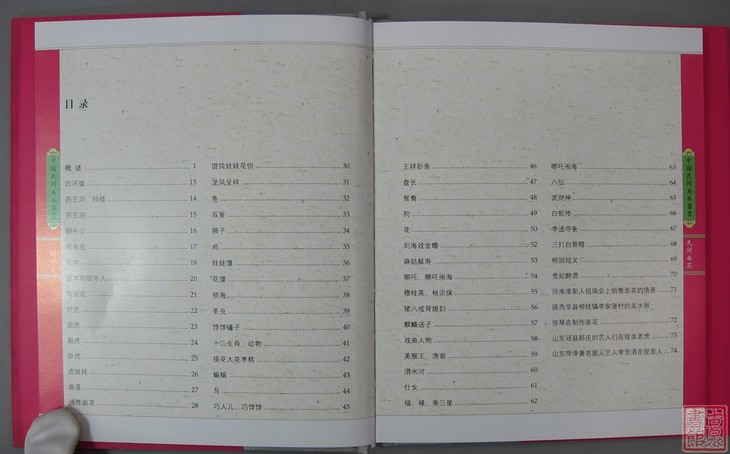 目录
概述 1
四不像 13
药王洞、钟楼 14
药王庙 15
蜗牛山 16
18
19
20
21
22
面虎 23
跑虎 24
卧虎 25
虎娃娃 26
鱼莲 27
通作面花 28
馄饨娃娃花供 30
龙凤呈祥 31
鱼 32
双鱼 33
狮子 34
鸡 35
娃娃馍 36
花馍 37
祭海 38
圣虫 39
饽饽磕子 40
十二生肖、动物 41
插花大花枣糕 42
蝙蝠 43
鸟 44
巧人儿、巧饽饽 45
王祥卧鱼 46
盘长 47
鸳鸯 48
狗 49
花 50
刘海戏金蟾 52
麻姑献寿 53
哪吒、哪吒闹海 54
穆桂英、杨宗保 55
猪八戒背媳妇 56
麒麟送子 57
戏曲人物 58
美猴王、渔翁 59
渭水河 60
仕女 61
福、禄、寿三星 62
哪吒闹海 63
八仙 64
武财神 65
白蛇传 66
李逵夺鱼 67
三打白骨精 68
桃园结义 69
贵妃醉酒 70
河南淮阳人祖庙会上销售面花的情景 71
陕西华县柳枝镇李家堡村的吴水丽、
张琴在制作面花 72
山东冠县郎庄的艺人们在捏面老虎 73
山东菏泽著名面人艺人李芳清在捏面人 74
中国民间美术鉴赏
民间面花